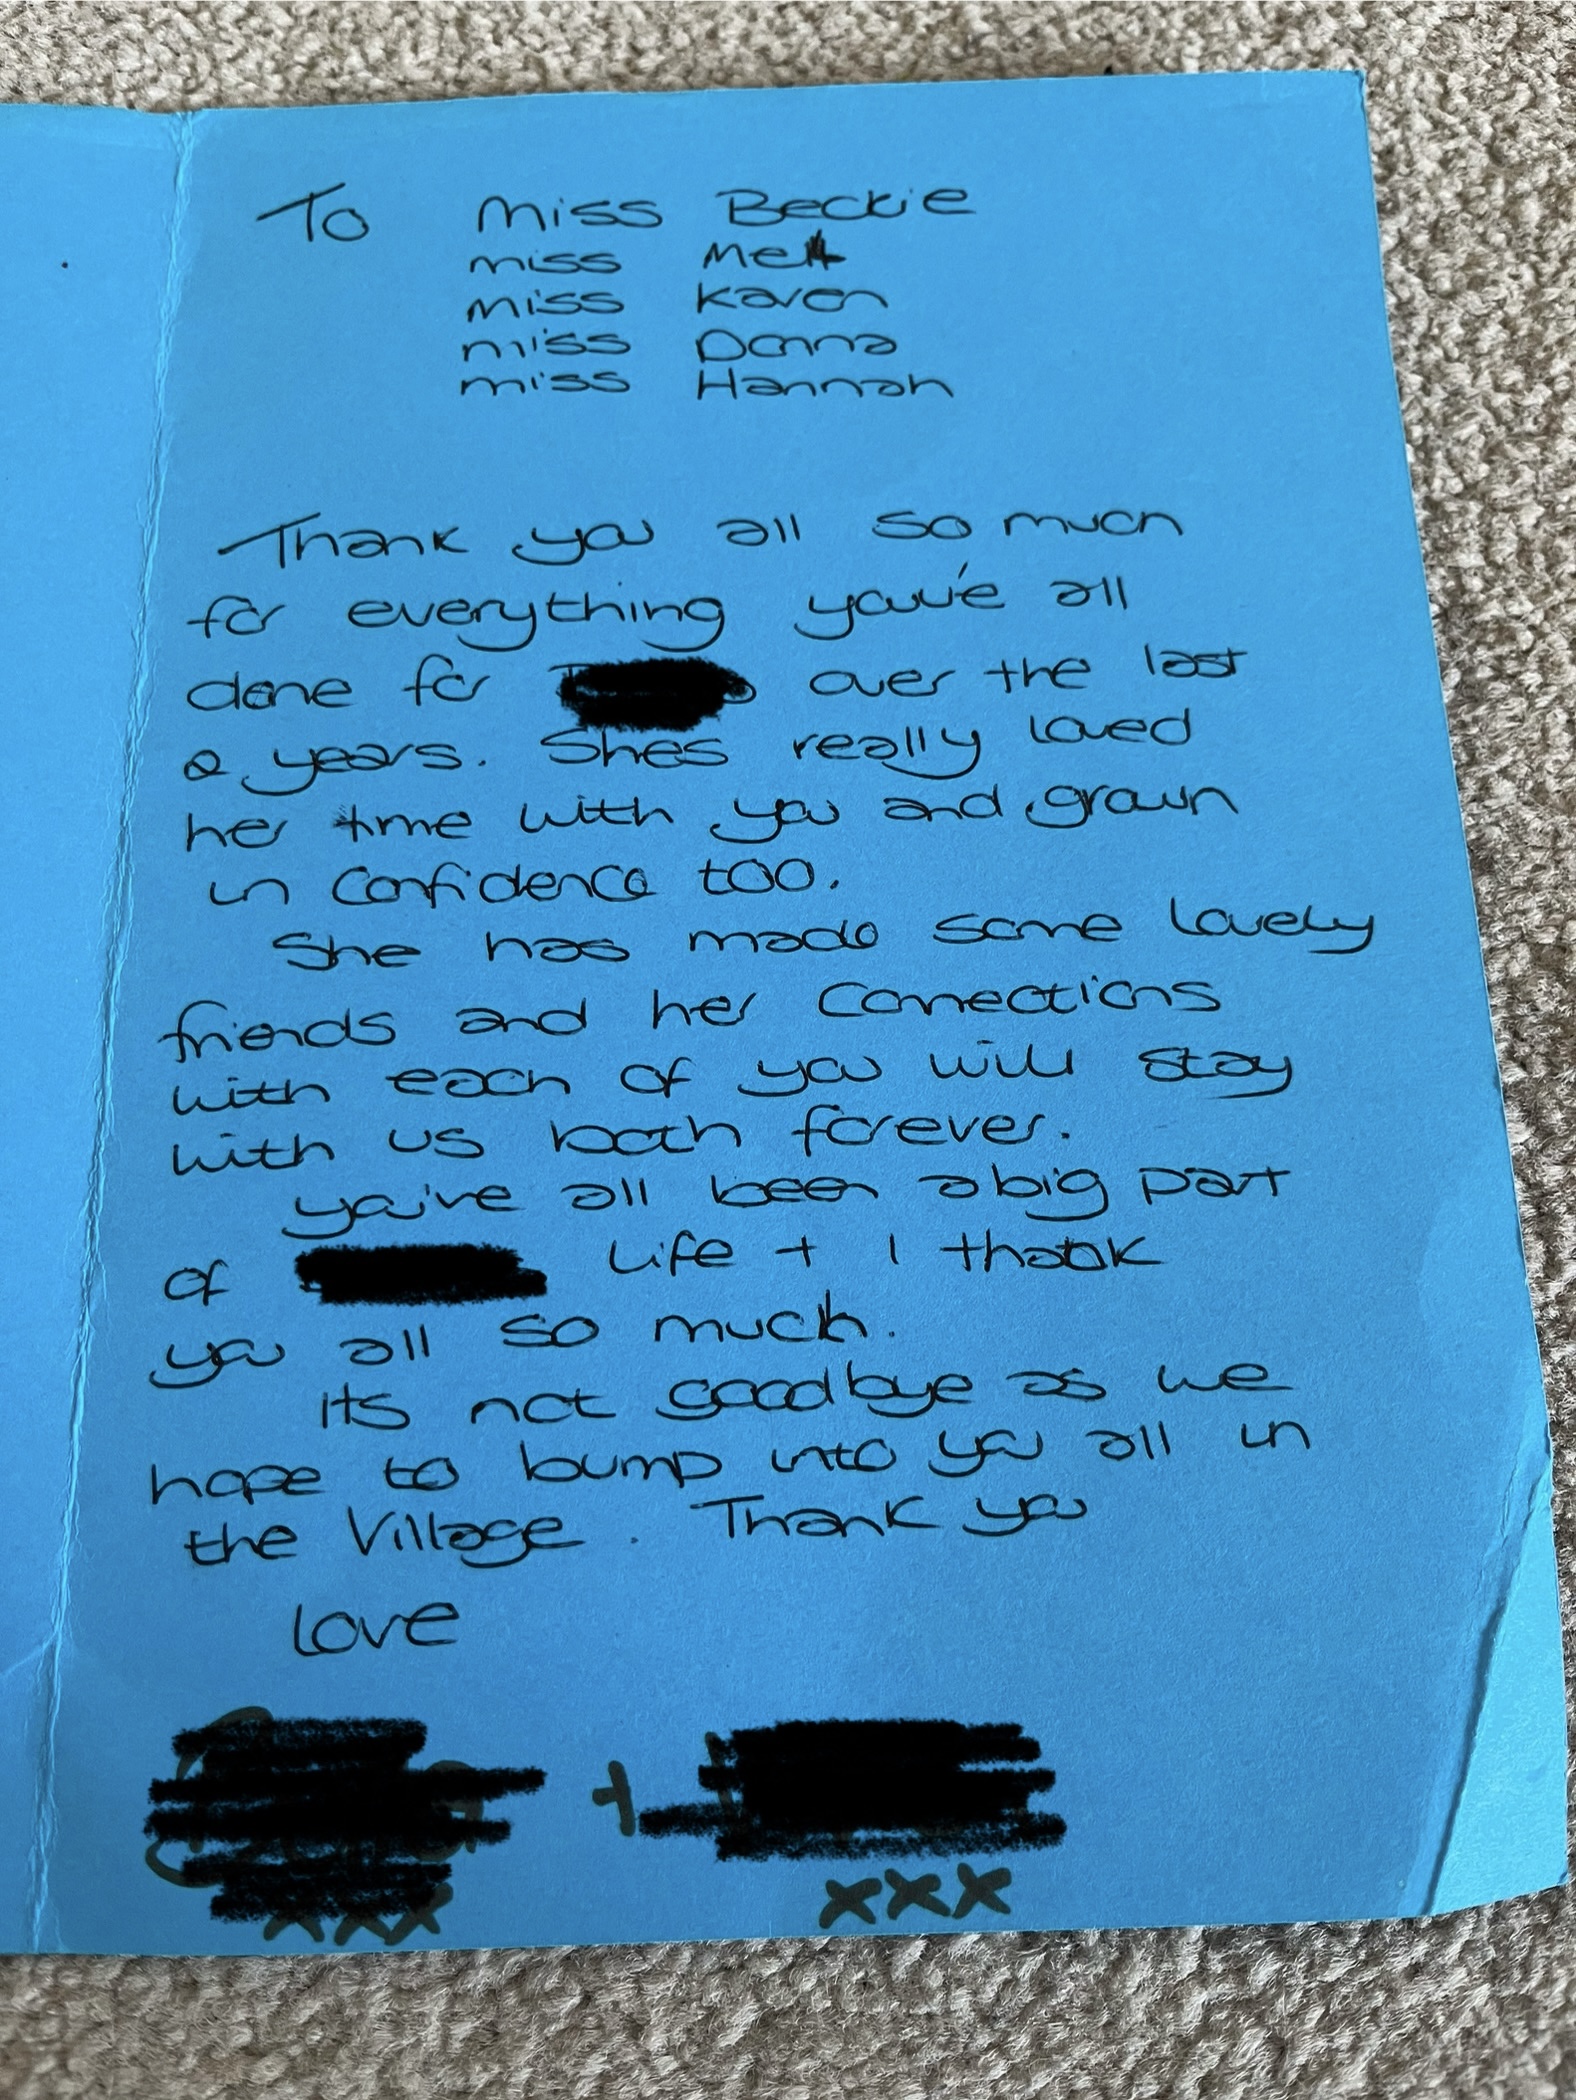 To Miss Beckie
miss Mel
miss Karen
miss Donna
miss Hannah
Thank you all so much
for everything youv'e all
done for over the last
2 years. Shes really loved
her time with you and grown
in confidence too.
She has made some lovely
friends and her connections
with each of you will stay
with us both forever.
you've all been a big part
of Life + I thank
you all so much.
its not goodbye as we
hope to bump into you all in
the Village. Thank you
Love
+
xxx xxx